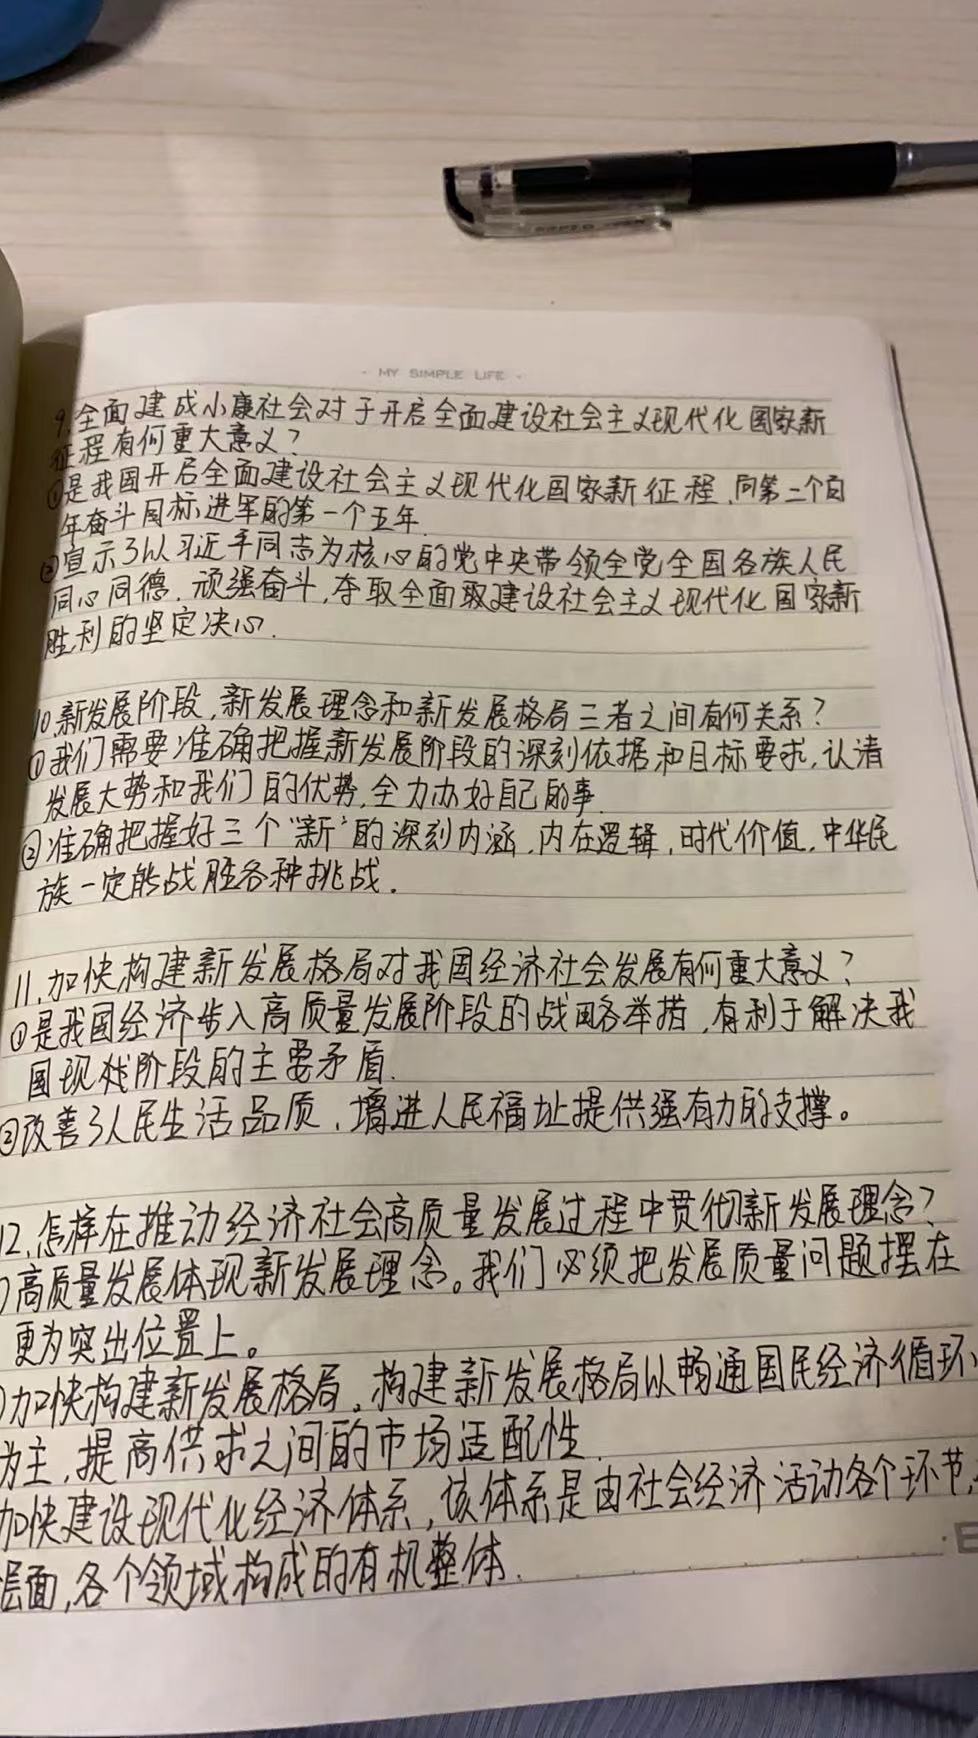 · MY SIMPLE LIFE ·
9.全面建成小康社会对于开启全面建设社会主义现代化国家新
征程有何重大意义？
①是我国开启全面建设社会主义现代化国家新征程,向第二个百
年奋斗目标进军的第一个五年.
②宣示了以习近平同志为核心的党中央带领全党全国各族人民
同心同德.顽强奋斗,夺取全面取建设社会主义现代化国家新
胜利的坚定决心.
10.新发展阶段,新发展理念和新发展格局三者之间有何关系？
①我们需要准确把握新发展阶段的深刻依据和目标要求,认清
发展大势和我们的优势,全力办好自己的事.
②准确把握好三个“新”的深刻内涵.内在逻辑,时代价值.中华民
族一定能战胜各种挑战.
11.加快构建新发展格局对我国经济社会发展有何重大意义？
①是我国经济步入高质量发展阶段的战略举措,有利于解决我
国现阶段的主要矛盾.
②改善了人民生活品质,增进人民福址提供强有力的支撑。
12.怎样在推动经济社会高质量发展过程中贯彻新发展理念？
)高质量发展体现新发展理念。我们必须把发展质量问题摆在
更为突出位置上。
)加快构建新发展格局。构建新发展格局以畅通国民经济循环
为主,提高供求之间的市场适配性.
加快建设现代化经济体系,该体系是由社会经济活动各个环节,
层面,各个领域构成的有机整体.